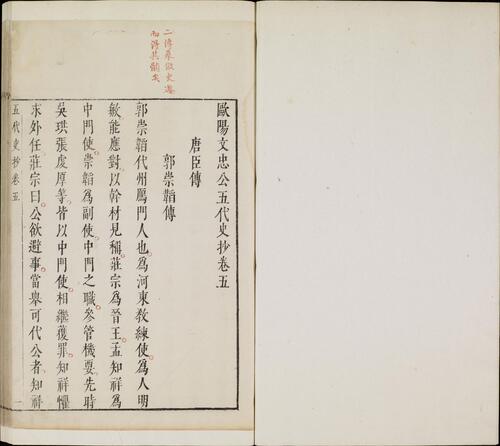 二傳兼倣史遷
而得其髓矣
歐陽文忠公五代史抄卷五
唐臣傳
郭崇韜傳
郭崇韜代州鴈門人也為河東教練使為人明
敏能應對以幹材見稱莊宗為晉王孟知祥為
中門使崇韜為副使中門之職參管機要先時
吳珙張虔厚等皆以中門使相繼獲罪知祥懼
求外任莊宗曰公欲避事當舉可代公者知祥
五代史抄卷五
一